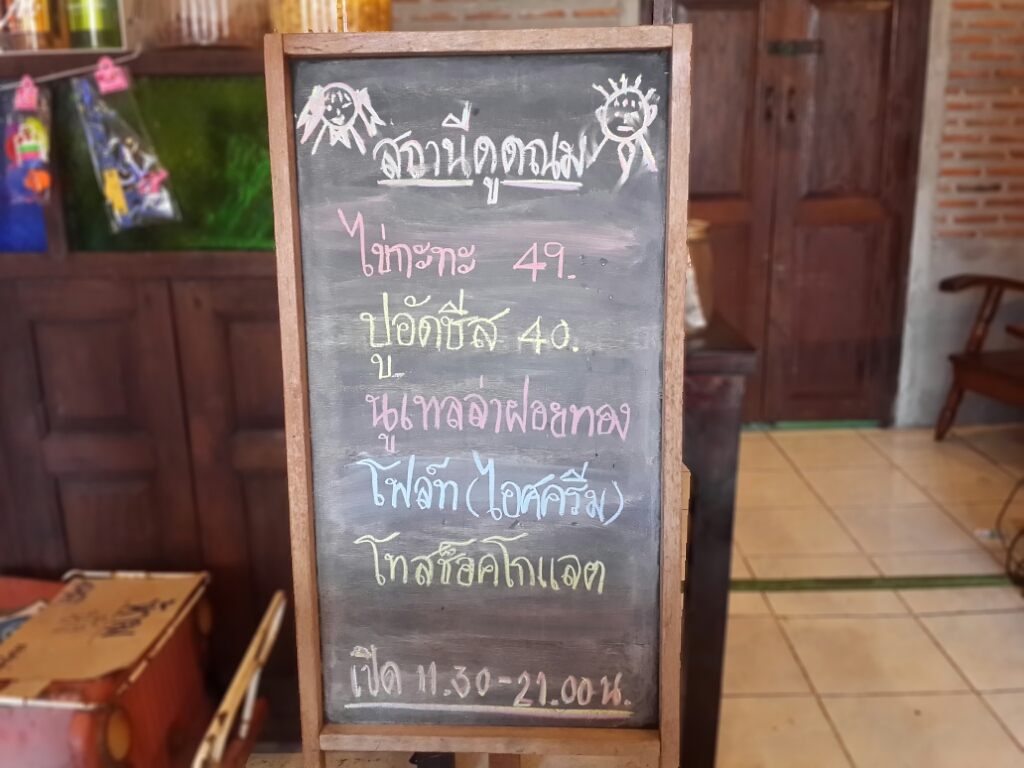 สถานีดูดณม
ไข่กะทะ 49.
ปูอัดชีส 40.
นูเทลล่าฝอยทอง
โฟล์ท (ไอศครีม)
โทสช็อคโกแลต
เปิด 11.30-21.00 น.